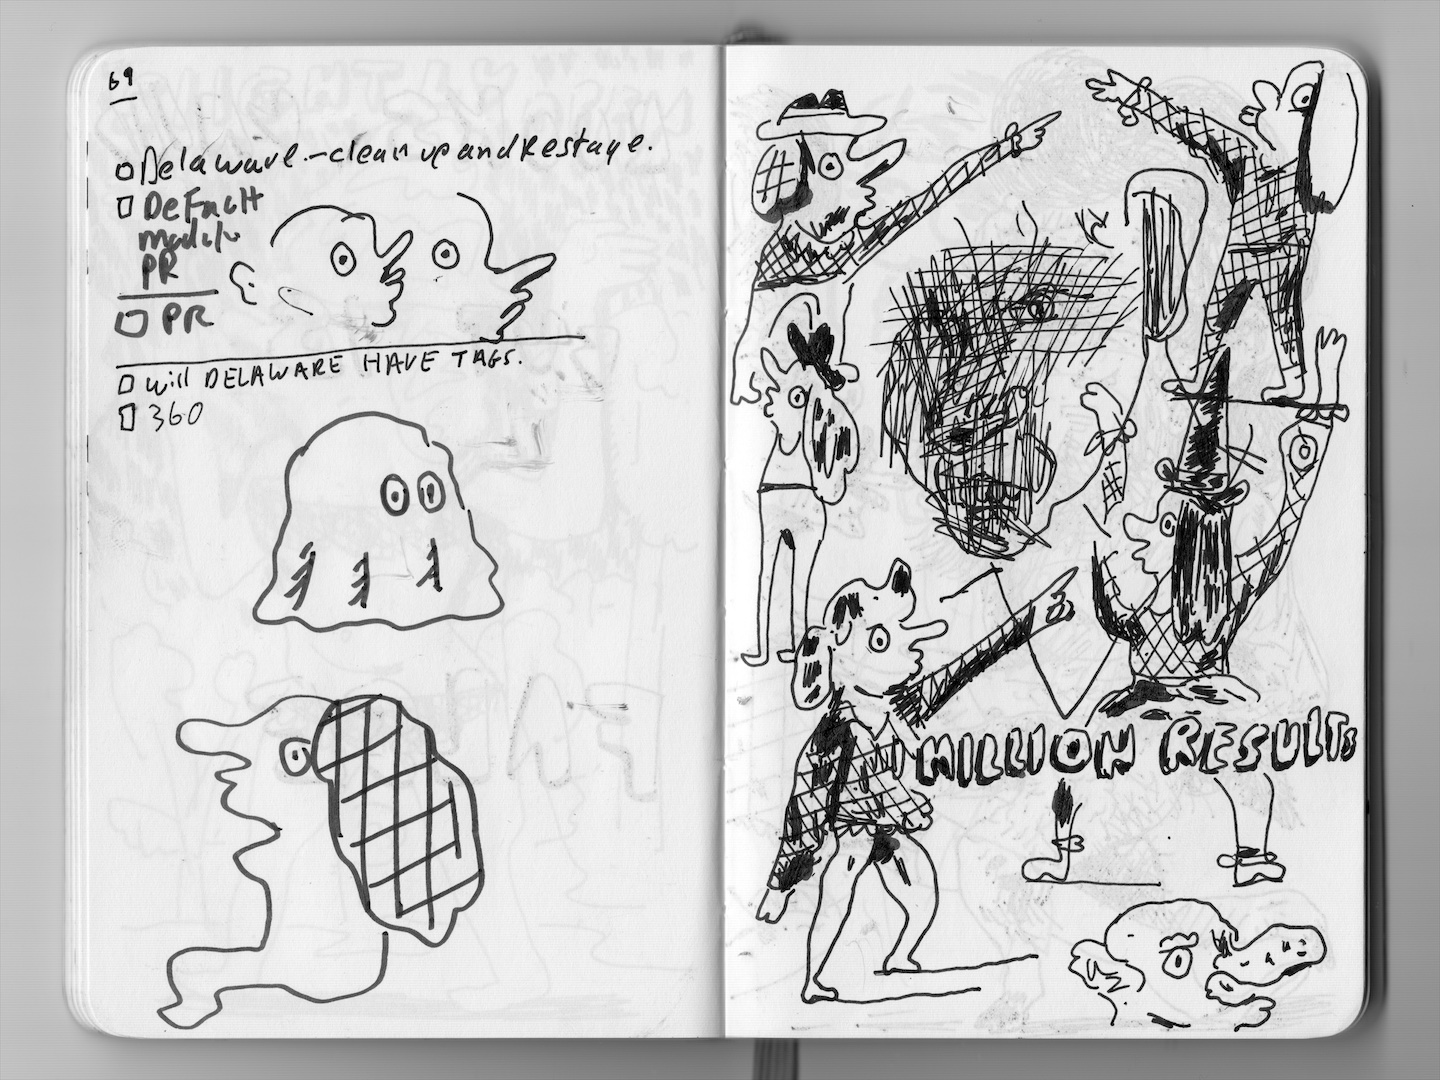 69
Delaware - clean up and Restage.
Default
PR
PR
will DELAWARE HAVE TAGS.
360
1 MILLION RESULTS